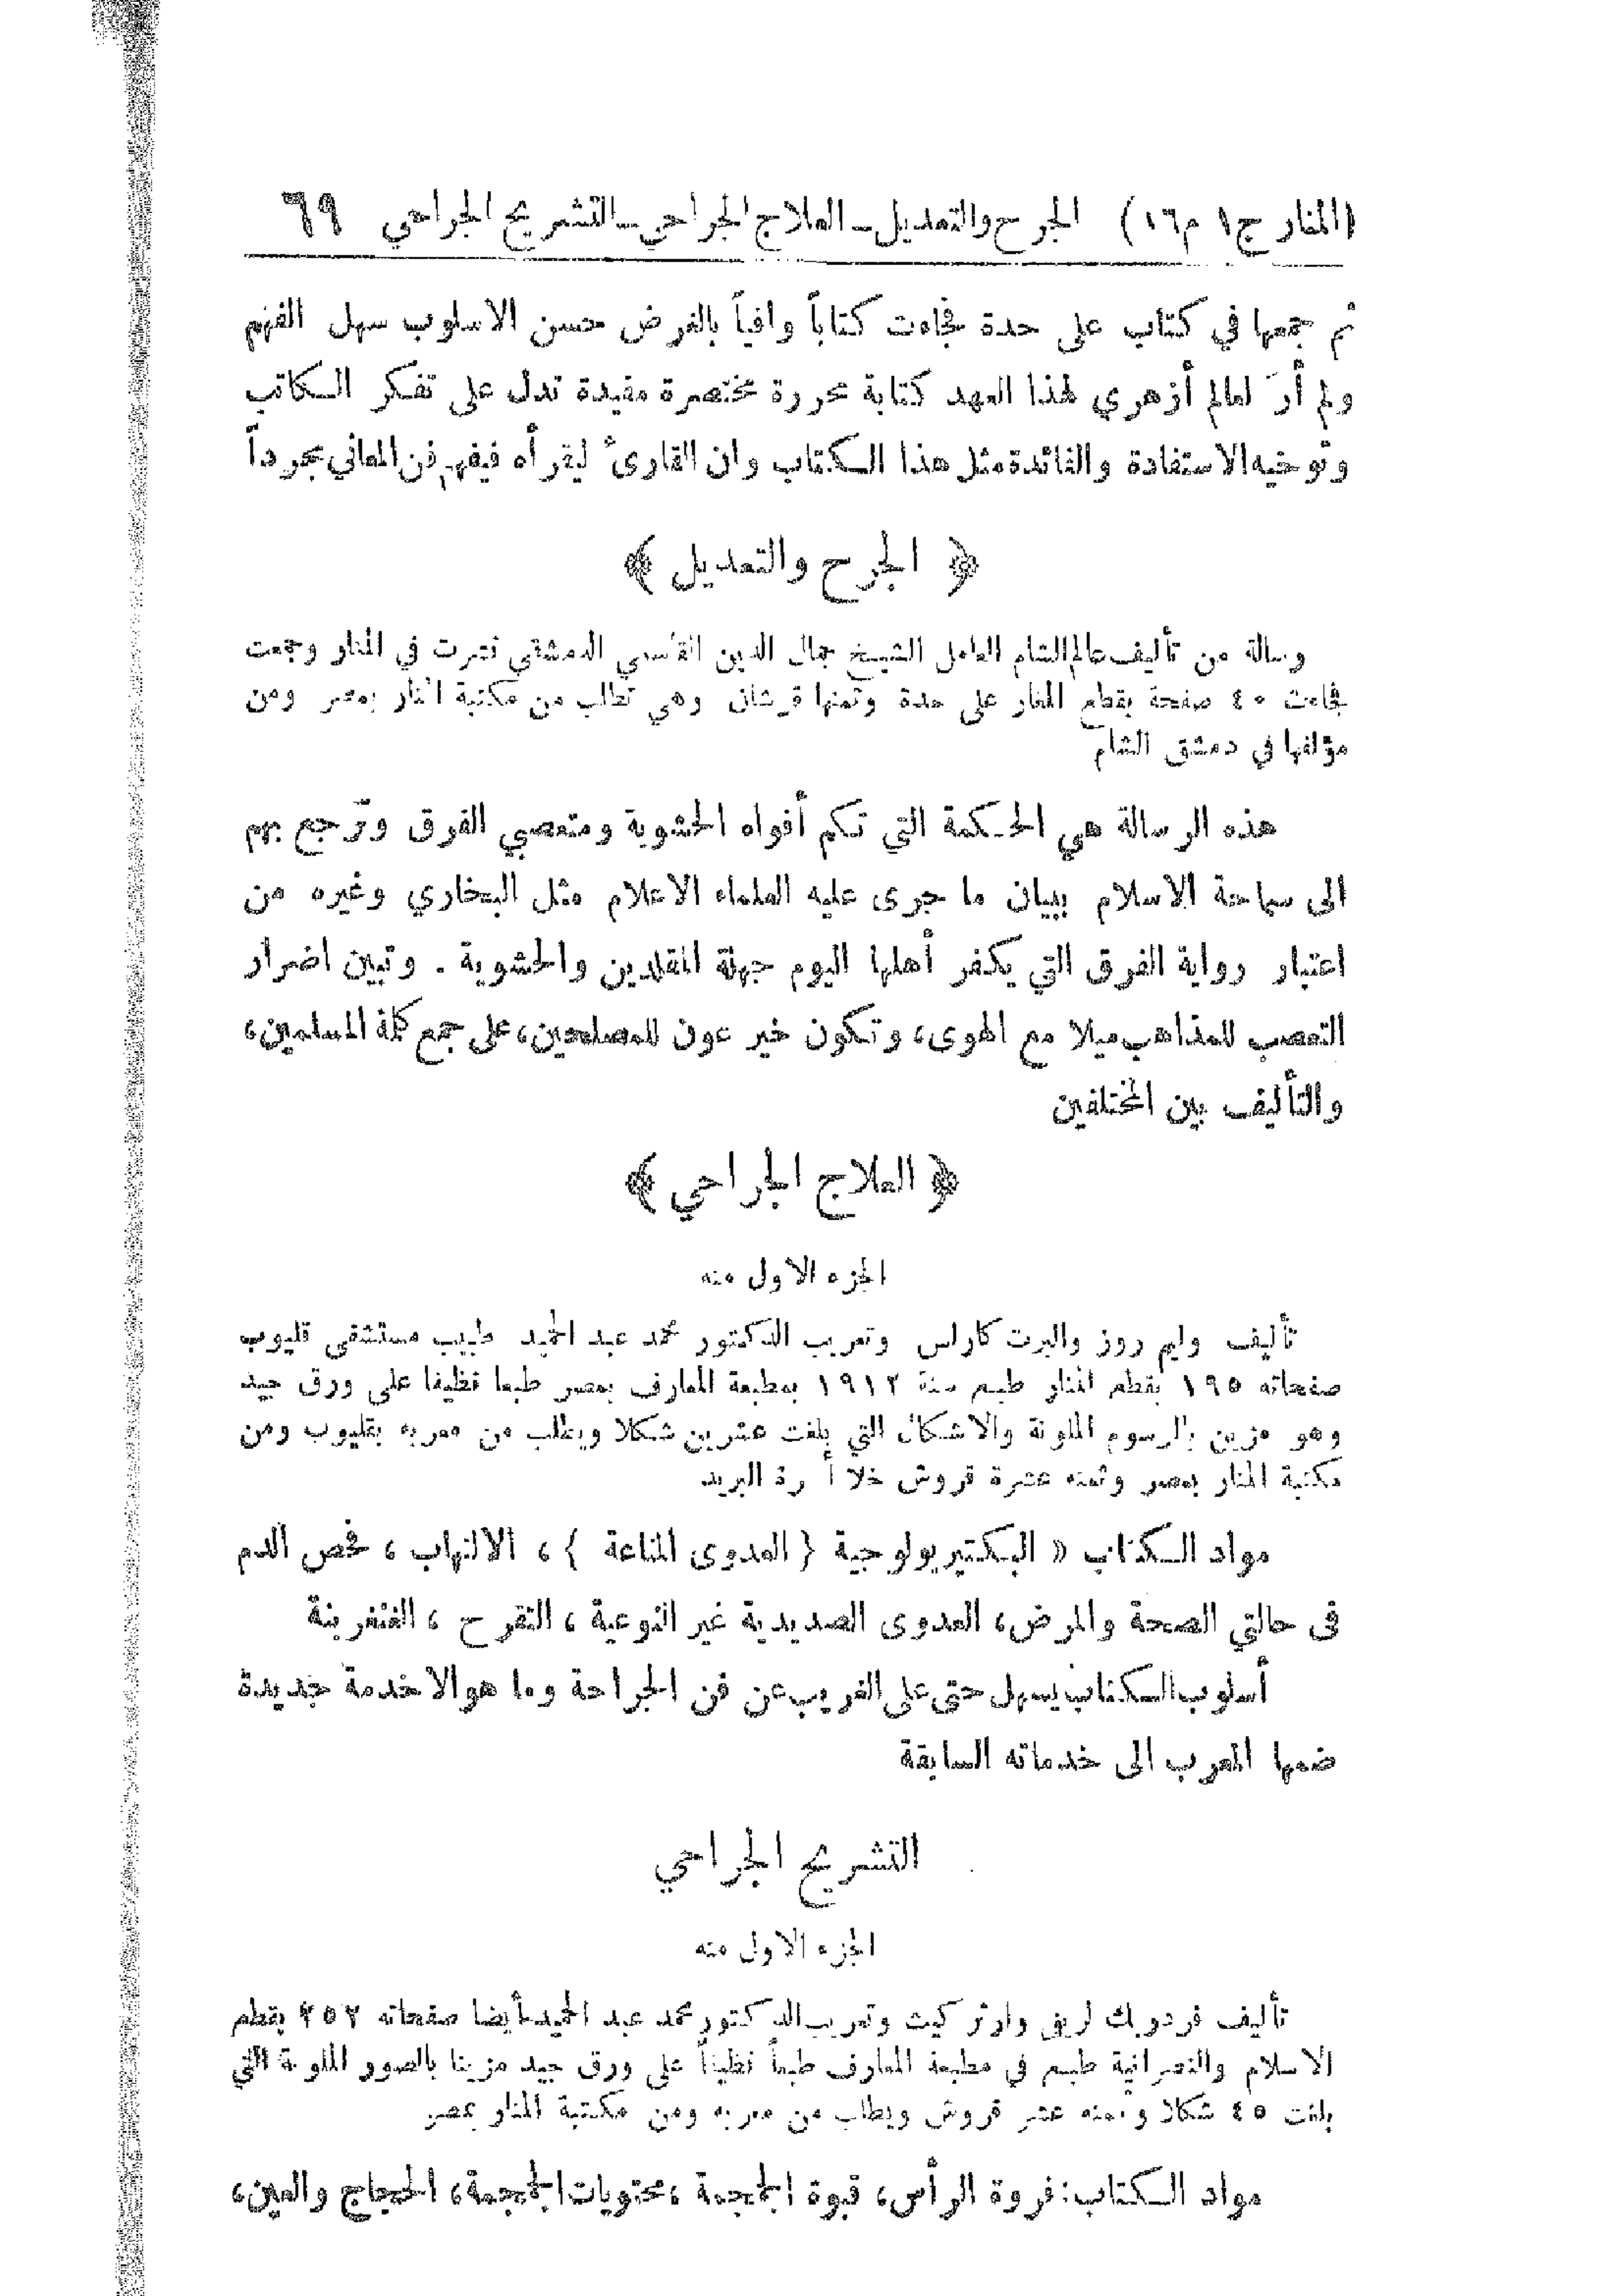 (المنار ج١ م١٦) الجرح والتعديل ـ العلاج الجراحي ـ التشريح الجراحي ٦٩
ثم جمعها في كتاب على حدة فجاءت كتاباً وافياً بالغرض حسن الاسلوب سهل الفهم
ولم أرَ لعالم أزهري لهذا العهد كتابة محررة مختصرة مفيدة تدل على تفكر الكاتب
وتوخيه الاستفادة والفائدة مثل هذا الكتاب وان القارئ ليقرأه فيفهم فن المعاني مجرداً
﴿ الجرح والتعديل ﴾
رسالة من تأليف عالم الشام العامل الشيخ جمال الدين القاسمي الدمشقي نشرت في المنار وجمعت
فجاءت ٤٠ صفحة بقطع المنار على حدة وثمنها قرشان وهي تطلب من مكتبة المنار بمصر ومن
مؤلفها في دمشق الشام
هذه الرسالة هي الحكمة التي تكم أفواه الحشوية ومتعصبي الفرق وترجع بهم
الى سماحة الاسلام ببيان ما جرى عليه العلماء الاعلام مثل البخاري وغيره من
اعتبار رواية الفرق التي يكفر أهلها اليوم جهلة المقلدين والحشوية . وتبين اضرار
التعصب للمذاهب ميلا مع الهوى، وتكون خير عون للمصلحين، على جمع كلمة المسلمين،
والتأليف بين المختلفين
﴿ العلاج الجراحي ﴾
الجزء الاول منه
تأليف وليم روز والبرت كارلس وتعريب الدكتور محمد عبد الحميد طبيب مستشفى قليوب
صفحاته ١٩٥ بقطع المنار طبع سنة ١٩١٢ بمطبعة المعارف بمصر طبعا نظيفا على ورق جيد
وهو مزين بالرسوم الملونة والاشكال التي بلغت عشرين شكلا ويطلب من معربه بقليوب ومن
مكتبة المنار بمصر وثمنه عشرة قروش خلا أ رة البريد
مواد الكتاب « البكتيريولوجية { العدوى المناعة } ، الالتهاب ، فحص الدم
في حالتي الصحة والمرض، العدوى الصديدية غير النوعية ، التقرح ، الغنغرينة
أسلوب الكتاب يسهل حتى على الغريب عن فن الجراحة وما هو الا خدمة جديدة
ضمها المعرب الى خدماته السابقة
التشريح الجراحي
الجزء الاول منه
تأليف فردريك لريف وارثر كيث وتعريب الدكتور محمد عبد الحميد أيضا صفحاته ٢٥٢ بقطع
الاسلام والنصرانية طبع في مطبعة المعارف طبعاً نظيفاً على ورق جيد مزينا بالصور الملونة التي
بلغت ٤٥ شكلا وثمنه عشر قروش ويطلب من معربه ومن مكتبة المنار بمصر
مواد الكتاب: فروة الرأس، قبوة الجمجمة ، محتويات الجمجمة، الحجاج والعين،